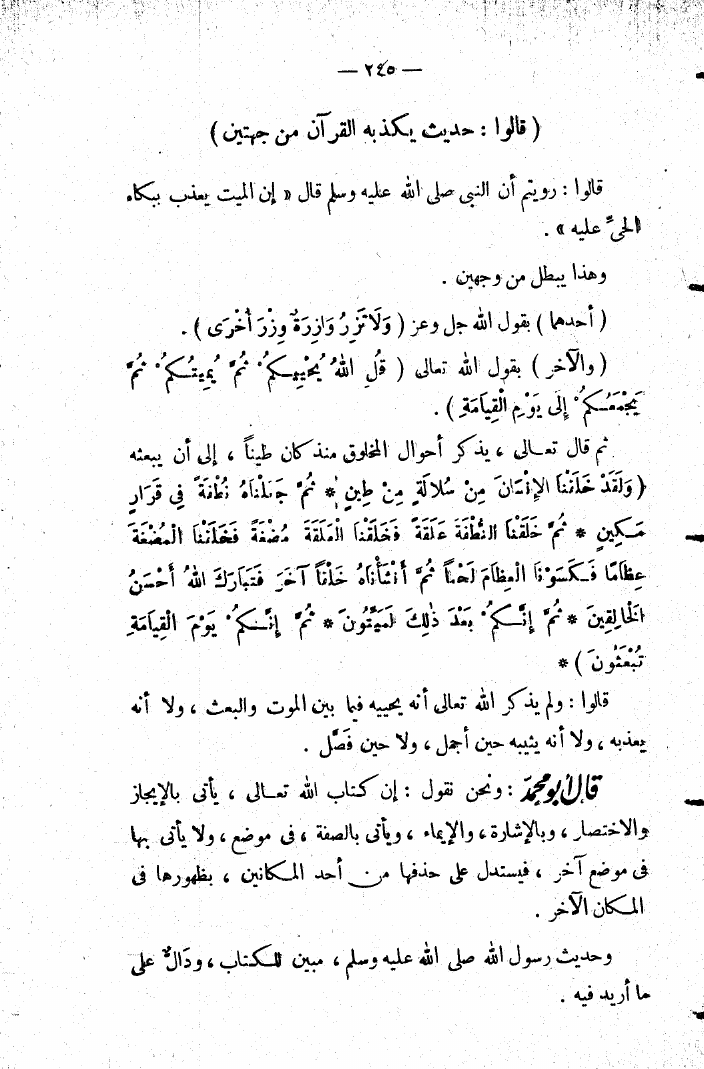 — ٢٤٥ —
( قالوا : حديث يكذبه القرآن من جهتين )
قالوا : رويتم أن النبى صلى الله عليه وسلم قال « إن الميت يعذب ببكاء
الحىِّ عليه » .
وهذا يبطل من وجهين .
( أحدهما ) بقول الله جل وعز ( وَلَا تَزِرُ وَازِرَةٌ وِزْرَ أُخْرَى ) .
( والآخر ) بقول الله تعالى ( قُلِ اللهُ يُحْيِيكُمْ ثُمَّ يُمِيتُكُمْ ثُمَّ
يَجْمَعُكُمْ إِلَى يَوْمِ الْقِيَامَةِ ) .
ثم قال تعـالى ، يذكر أحوال المخلوق منذ كان طيناً ، إلى أن يبعثه
( وَلَقَدْ خَلَقْنَا الإِنْسَانَ مِنْ سُلَالَةٍ مِنْ طِينٍ * ثُمَّ جَعَلْنَاهُ نُطْفَةً فِى قَرَارٍ
مَكِينٍ * ثُمَّ خَلَقْنَا النُّطْفَةَ عَلَقَةً فَخَلَقْنَا الْعَلَقَةَ مُضْغَةً فَخَلَقْنَا الْمُضْغَةَ
عِظَامًا فَكَسَوْنَا الْعِظَامَ لَحْماً ثُمَّ أَنْشَأْنَاهُ خَلْقاً آخَرَ فَتَبَارَكَ اللهُ أَحْسَنُ
الْخَالِقِينَ * ثُمَّ إِنَّكُمْ بَعْدَ ذٰلِكَ لَمَيِّتُونَ * ثُمَّ إِنَّكُمْ يَوْمَ الْقِيَامَةِ
تُبْعَثُونَ ) *
قالوا : ولم يذكر الله تعالى أنه يحييه فيما بين الموت والبعث ، ولا أنه
يعذبه ، ولا أنه يثيبه حين أجمل ، ولا حين فَصَّل .
قال أبو محمد : ونحن نقول : إن كتاب الله تعـالى ، يأتى بالإيجاز
والاختصار ، وبالإشارة ، والإيماء ، ويأتى بالصفة ، فى موضع ، ولا يأتى بها
فى موضع آخر ، فيستدل على حذفها من أحد المكانين ، بظهورها فى
المكان الآخر .
وحديث رسول الله صلى الله عليه وسلم ، مبين للكتاب ، ودَالٌّ على
ما أريد فيه .